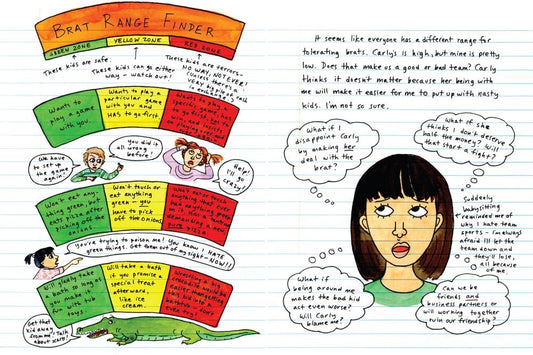 BRAT RANGE FINDER
GREEN ZONE
YELLOW ZONE
RED ZONE
These kids are safe.
These kids can go either
way - watch out!
These kids are terrors-
NO WAY, NOT EVER!
(Unless there's a
VERY big pile of
in exchange,
Wants to
play a game
with you.
Wants to play a
particular game
with you and
HAS to go first.
Wants to play a
specific game, has
to go first,
We have
to set up
the game
again!
You did it
all wrong
before!
Help!
I'll go
crazy!
Won't eat any-
thing green, but
eats pizza after
picking off the
onions.
Won't touch or
eat anything
green - you
have to pick
off the onions.
Won't eat or touch
anything that ever
had anything green
on it. Has a tantrum
demanding a new
pure pizza.
You're trying to poison me! You know I HATE
green things. Get them out of my sight - NOW!!
Will gladly take
a bath so long as
you make it
fun with tub
toys.
Will take a bath
if you promise a
special treat
afterward,
like ice
cream.
Wrestling a big
crocodile would be
easier than getting
this kid into a
bathtub
even toys!
Get that
kid away
from me! Talk
about scary!
It seems like everyone has a different range for
tolerating brats. Carly's is high, but mine is pretty
low. Does that make us a good or bad team? Carly
thinks it doesn't matter because her being with
me will make it easier for me to put up with nasty
kids. I'm not so sure.
What if I
disappoint Carly
by making her
deal with the
brat?
What if she
thinks I don't deserve
half the money? Will
that start a fight?
Suddenly
babysitting
reminded me of
why I hate team
sports - I'm always
afraid I'll let the
team down and
they'll lose,
all because
of me.
What if
being around me
makes the bad kid
act even worse?
Will Carly
blame me?
Can we be
friends and
business partners or
will working together
ruin our friendship?